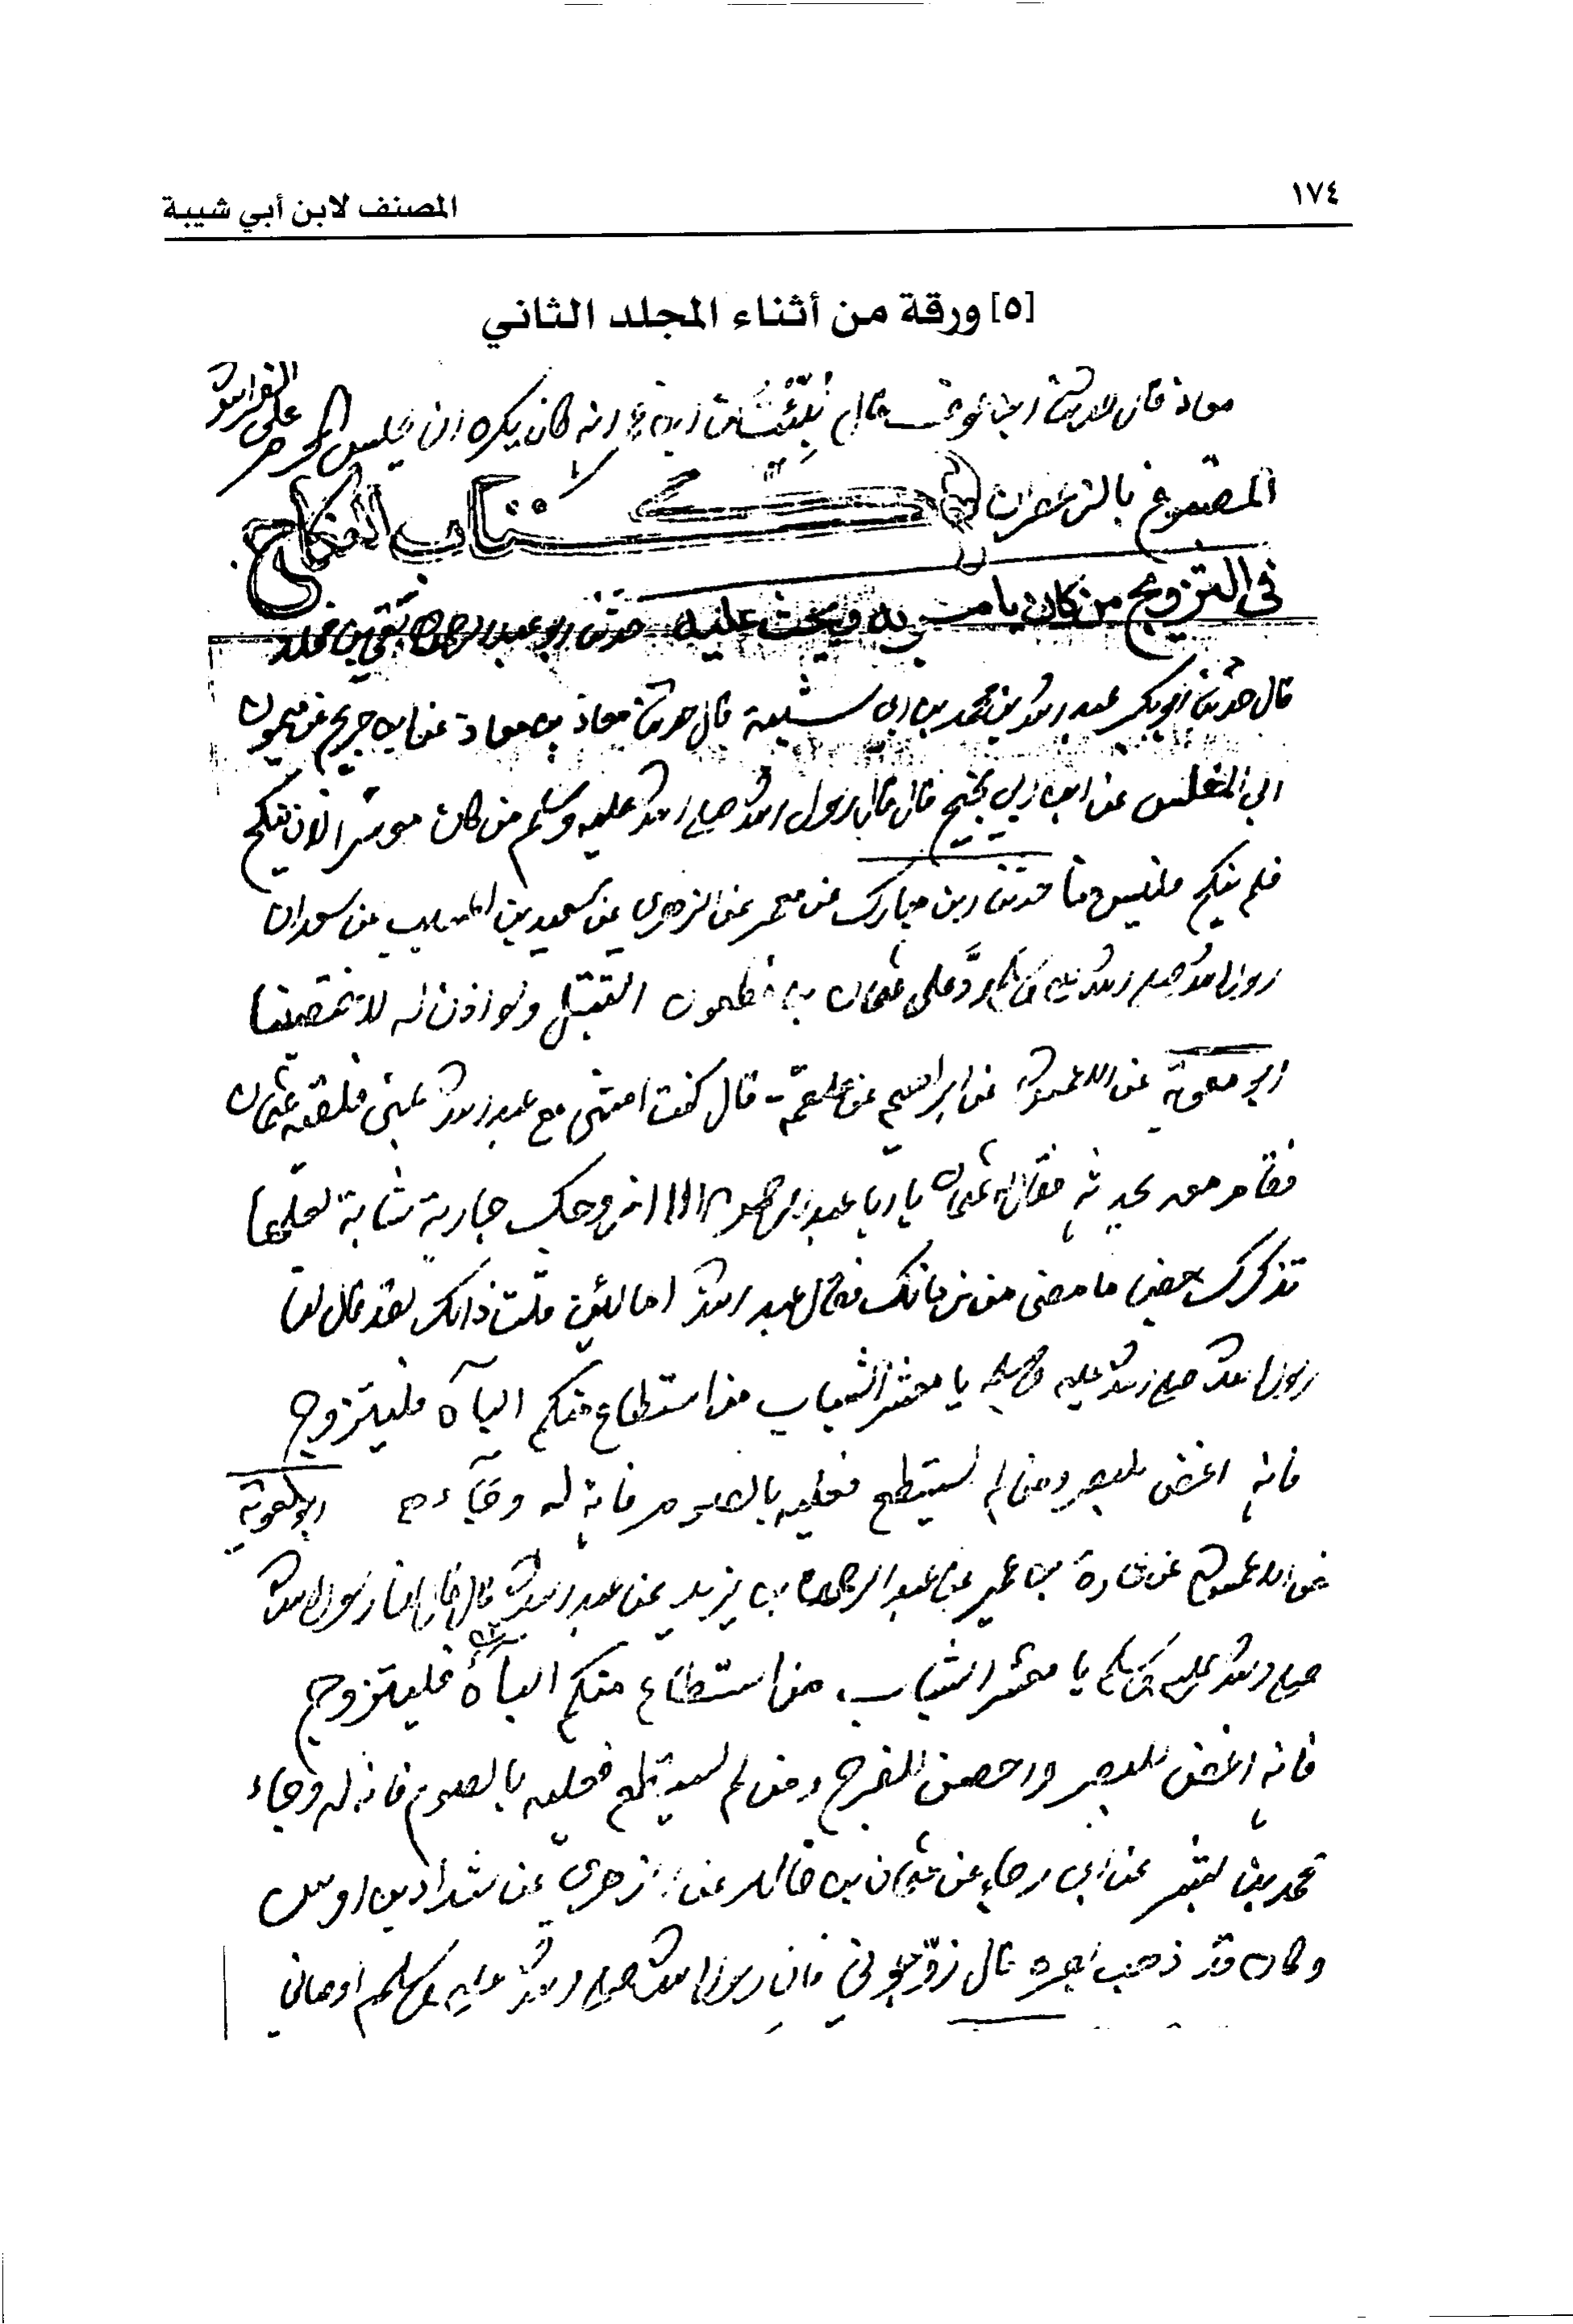 ١٧٤
المصنف لابن أبي شيبة
[٥] ورقة من أثناء المجلد الثاني
معاذ قال حدثنا ابن عون قال نبئت ان انه كان يكره ان يجلس المحرم على الفراش
المصبوغ بالزعفران كتاب النكاح
في التزويج من كان يامر به ويحث عليه حدثنا ابو عبد الرحمن بقي بن مخلد
قال حدثنا ابو بكر عبد الله بن محمد بن ابي شيبة قال حدثنا معاذ بن معاذ عن ابن جريج عن ميمون
ابي المغلس عن ابن ابي نجيح قال قال رسول الله صلى الله عليه وسلم من كان موسرا لان ينكح
فلم ينكح فليس منا حدثنا ابن مبارك عن معمر عن الزهري عن سعيد بن المسيب عن سعد ان
رسول الله صلى الله عليه وسلم رد على عثمان بن مظعون التبتل ولو اذن له لاختصينا
ابو معوية عن الاعمش عن ابراهيم عن علقمة قال كنت امشي مع عبد الله بمنى فلقيه عثمان
فقام معه يحدثه فقال له عثمان يا ابا عبد الرحمن الا ازوجك جارية شابة لعلها
تذكرك بعض ما مضى من زمانك فقال عبد الله اما لئن قلت ذاك لقد قال لنا
رسول الله صلى الله عليه وسلم يا معشر الشباب من استطاع منكم الباه فليتزوج
فانه اغض للبصر ومن لم يستطع فعليه بالصوم فانه له وجاء ابو معوية
عن الاعمش عن عمارة بن عمير عن عبد الرحمن بن يزيد عن عبد الله قال قال لنا رسول الله
صلى الله عليه وسلم يا معشر الشباب من استطاع منكم الباه فليتزوج
فانه اغض للبصر واحصن للفرج ومن لم يستطع فعليه بالصوم فانه له وجاء
محمد بن بشر عن ابي رجاء عن عثمان بن خالد عن الزهري عن شداد بن اوس
وكان قد ذهب بصره قال زوجوني فان رسول الله صلى الله عليه وسلم اوصاني